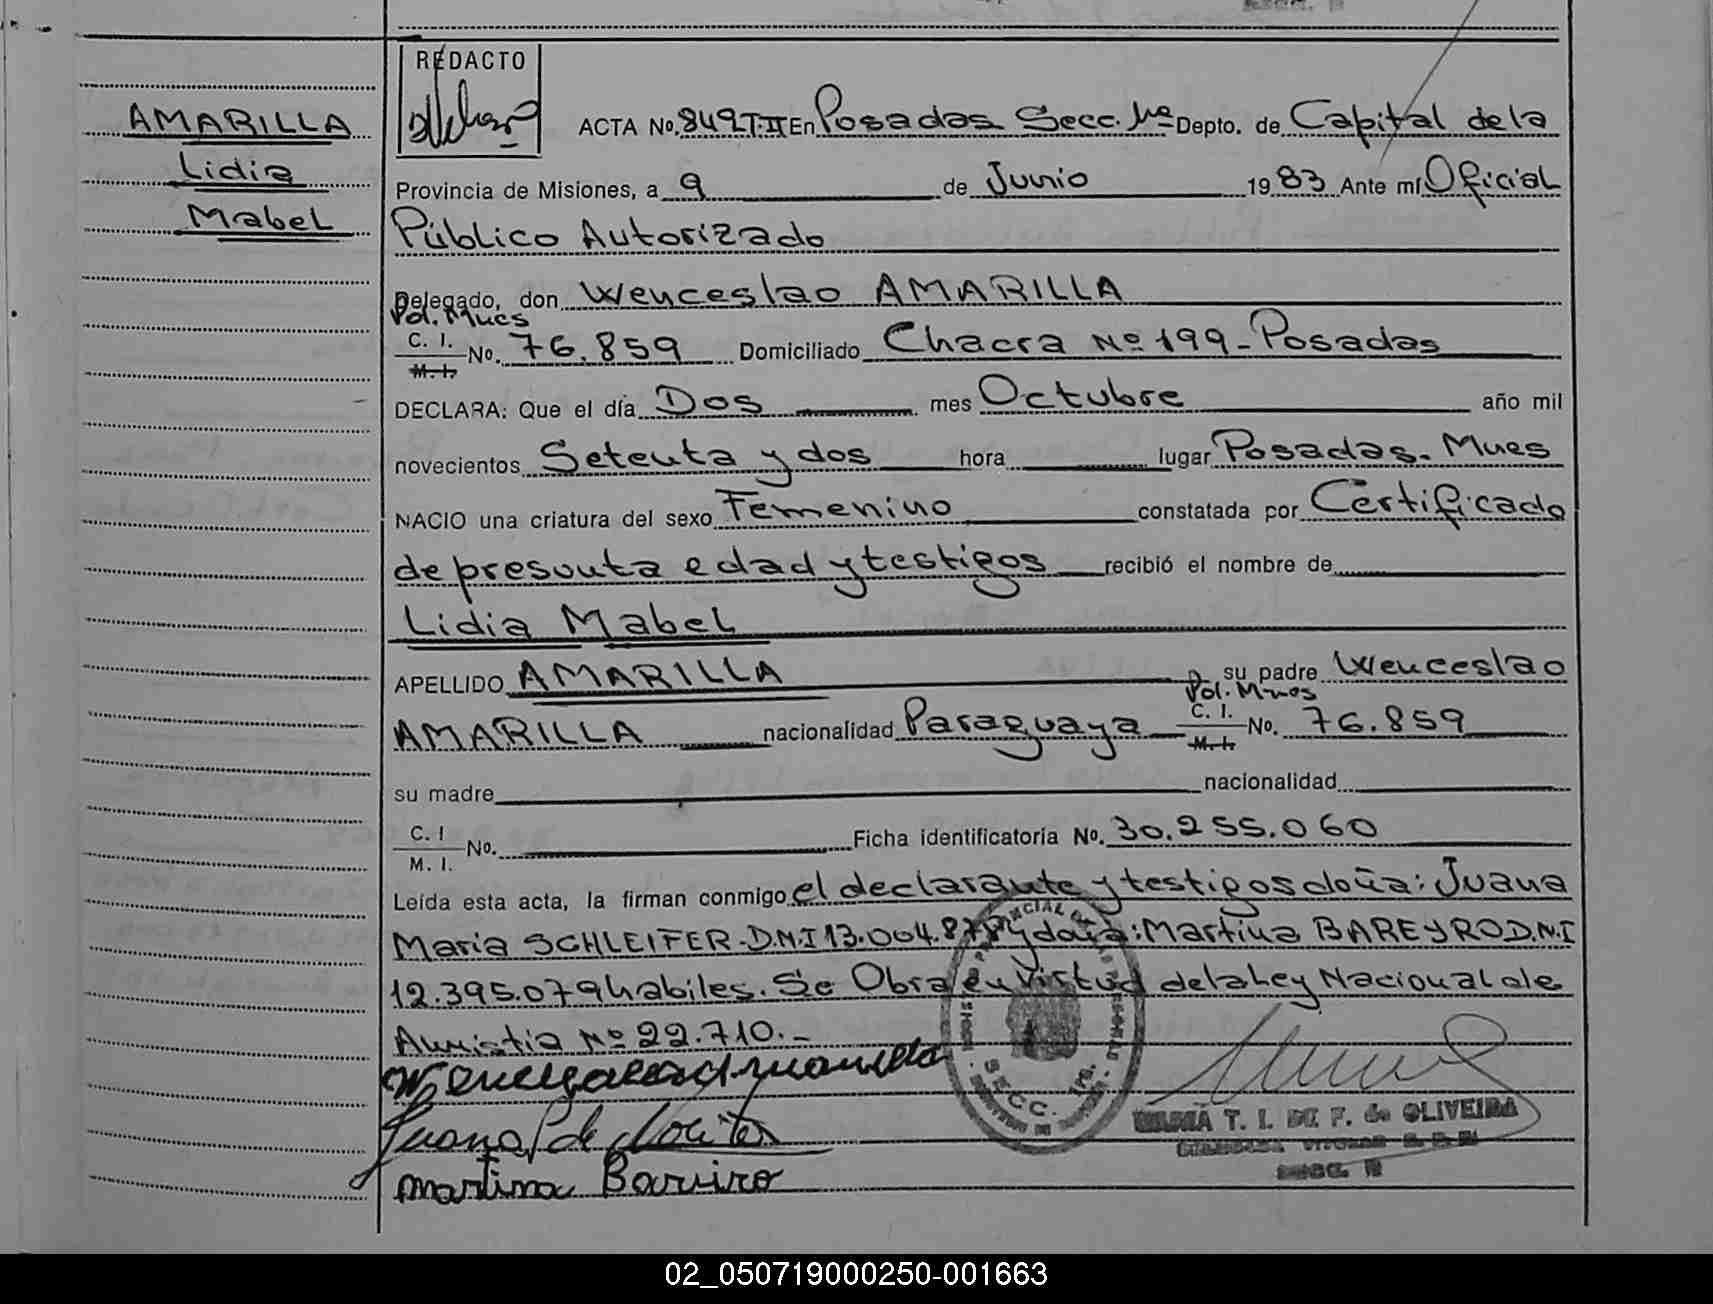 REDACTO
AMARILLA
Lidia
Mabel
ACTA No. 849 T·II En Posadas Secc. 1ra Depto. de Capital de la
Provincia de Misiones, a 9 de Junio 1983 Ante mí Oficial
Público Autorizado
Delegado, don Wenceslao AMARILLA
Pol. Mnes
C. I. No. 76.859 Domiciliado Chacra Nº 199 - Posadas
M. I.
DECLARA: Que el día Dos mes Octubre año mil
novecientos Setenta y dos hora lugar Posadas. Mnes
NACIO una criatura del sexo Femenino constatada por Certificado
de presunta edad y testigos recibió el nombre de
Lidia Mabel
APELLIDO AMARILLA su padre Wenceslao
Pol. Mnes
AMARILLA nacionalidad Paraguaya C. I. No. 76.859
M. I.
su madre nacionalidad
C. I No. Ficha identificatoria No. 30.255.060
M. I.
Leída esta acta, la firman conmigo el declarante y testigos doña: Juana
María SCHLEIFER - D.N.I 13.004. y doña: Martina BAREYRO D.N.I
12.395.079 habiles. Se Obra en virtud de la Ley Nacional de
Amnistia Nº 22.710.-
Juana de
martina Barriro
SECC. 1ra.
T. I. DE F. de OLIVEIRA
SECC.
02_050719000250-001663